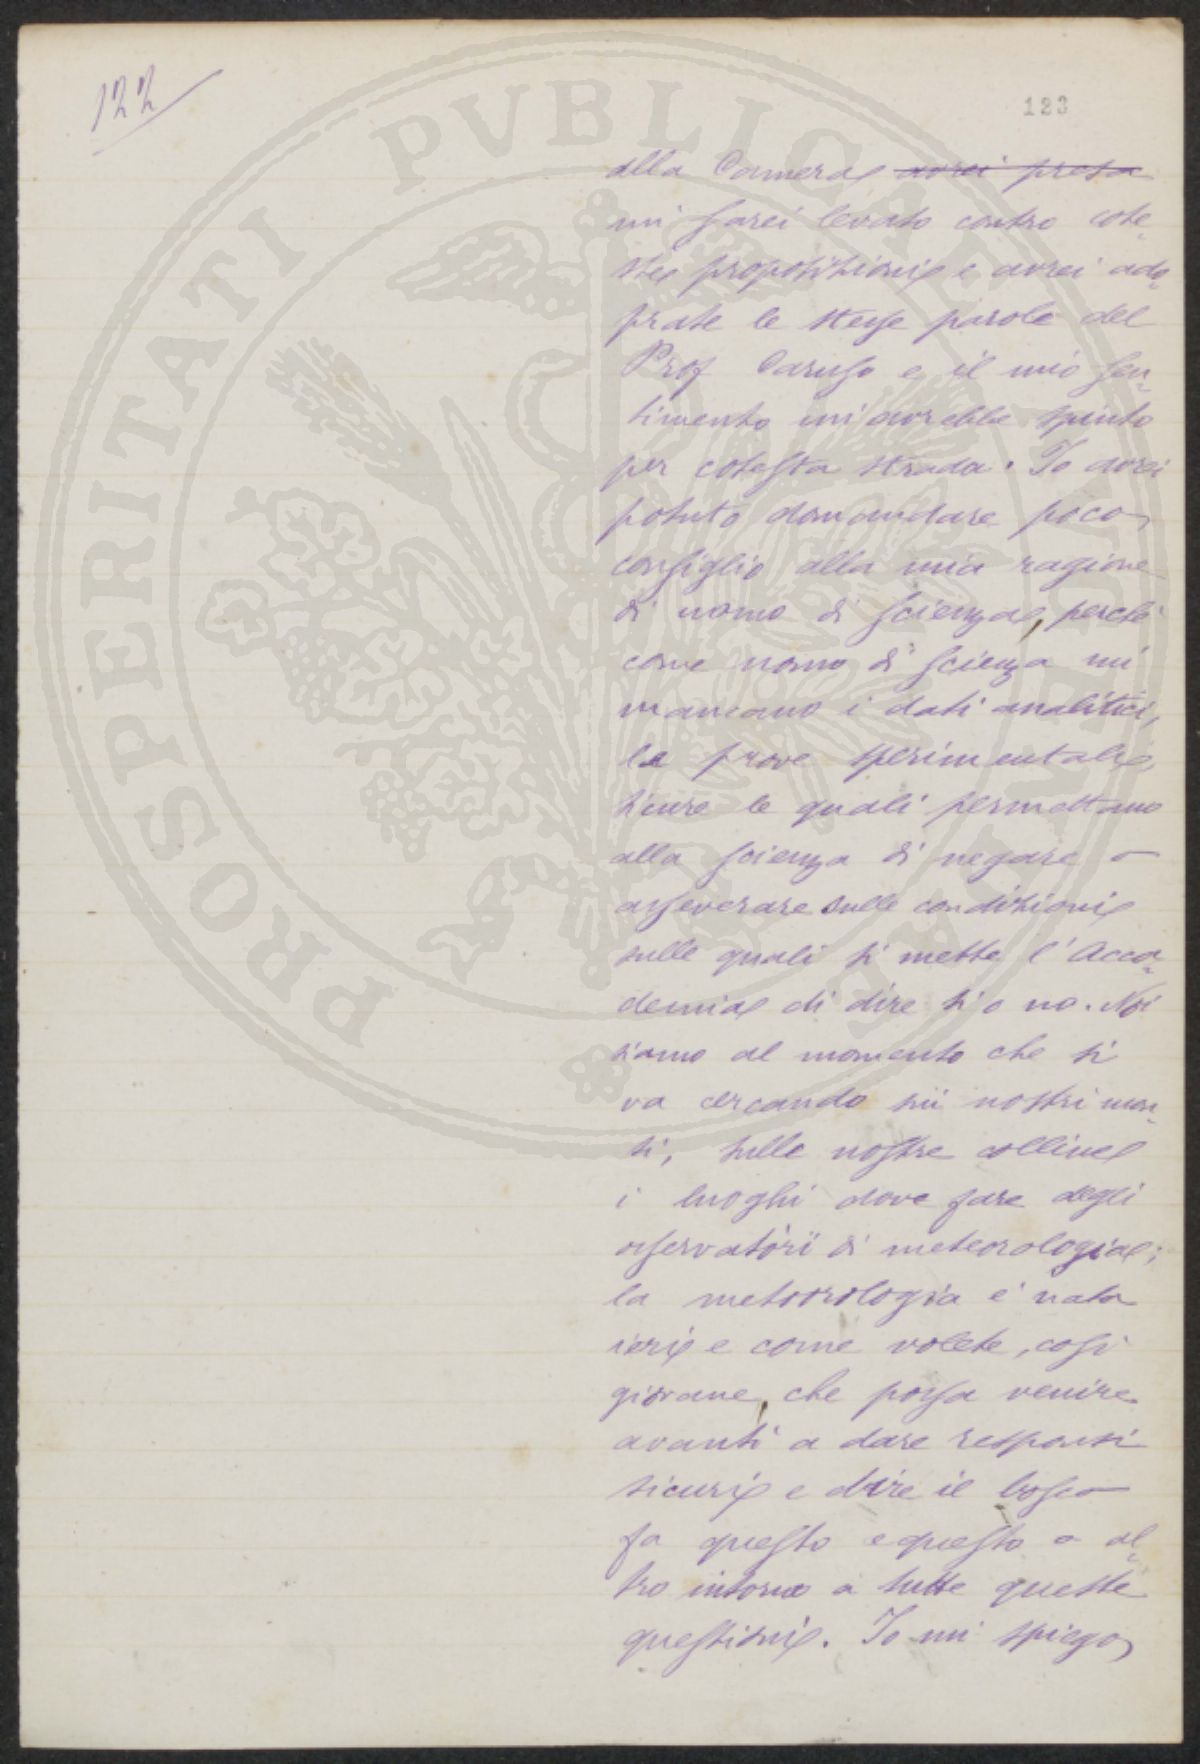 122
123
alla Camera avrei presa
mi sarei levato contro cote-
ste proposizioni e avrei ado-
prate le stesse parole del
Prof Caruso e il mio sen-
timento mi avrebbe spinto
per cotesta strada. Io avrei
potuto domandare poco
consiglio alla mia ragione
di uomo di scienza, perchè
come uomo di scienza mi
mancano i dati analitici,
le prove sperimentali
sicure le quali permettano
alla scienza di negare o
asseverare sulle condizioni
sulle quali si mette l'Acca-
demia di dire si o no. Noi
siamo al momento che si
va cercando sui nostri mon-
ti, sulle nostre colline
i luoghi dove fare degli
osservatorii di meteorologia;
la meteorologia è nata
ieri e come volete, così
giovane, che possa venire
avanti a dare responsi
sicuri e dire il bosco
fa questo e questo o al-
tro intorno a tutte queste
questioni. Io mi spiego
PROSPERITATI PVBLICAE